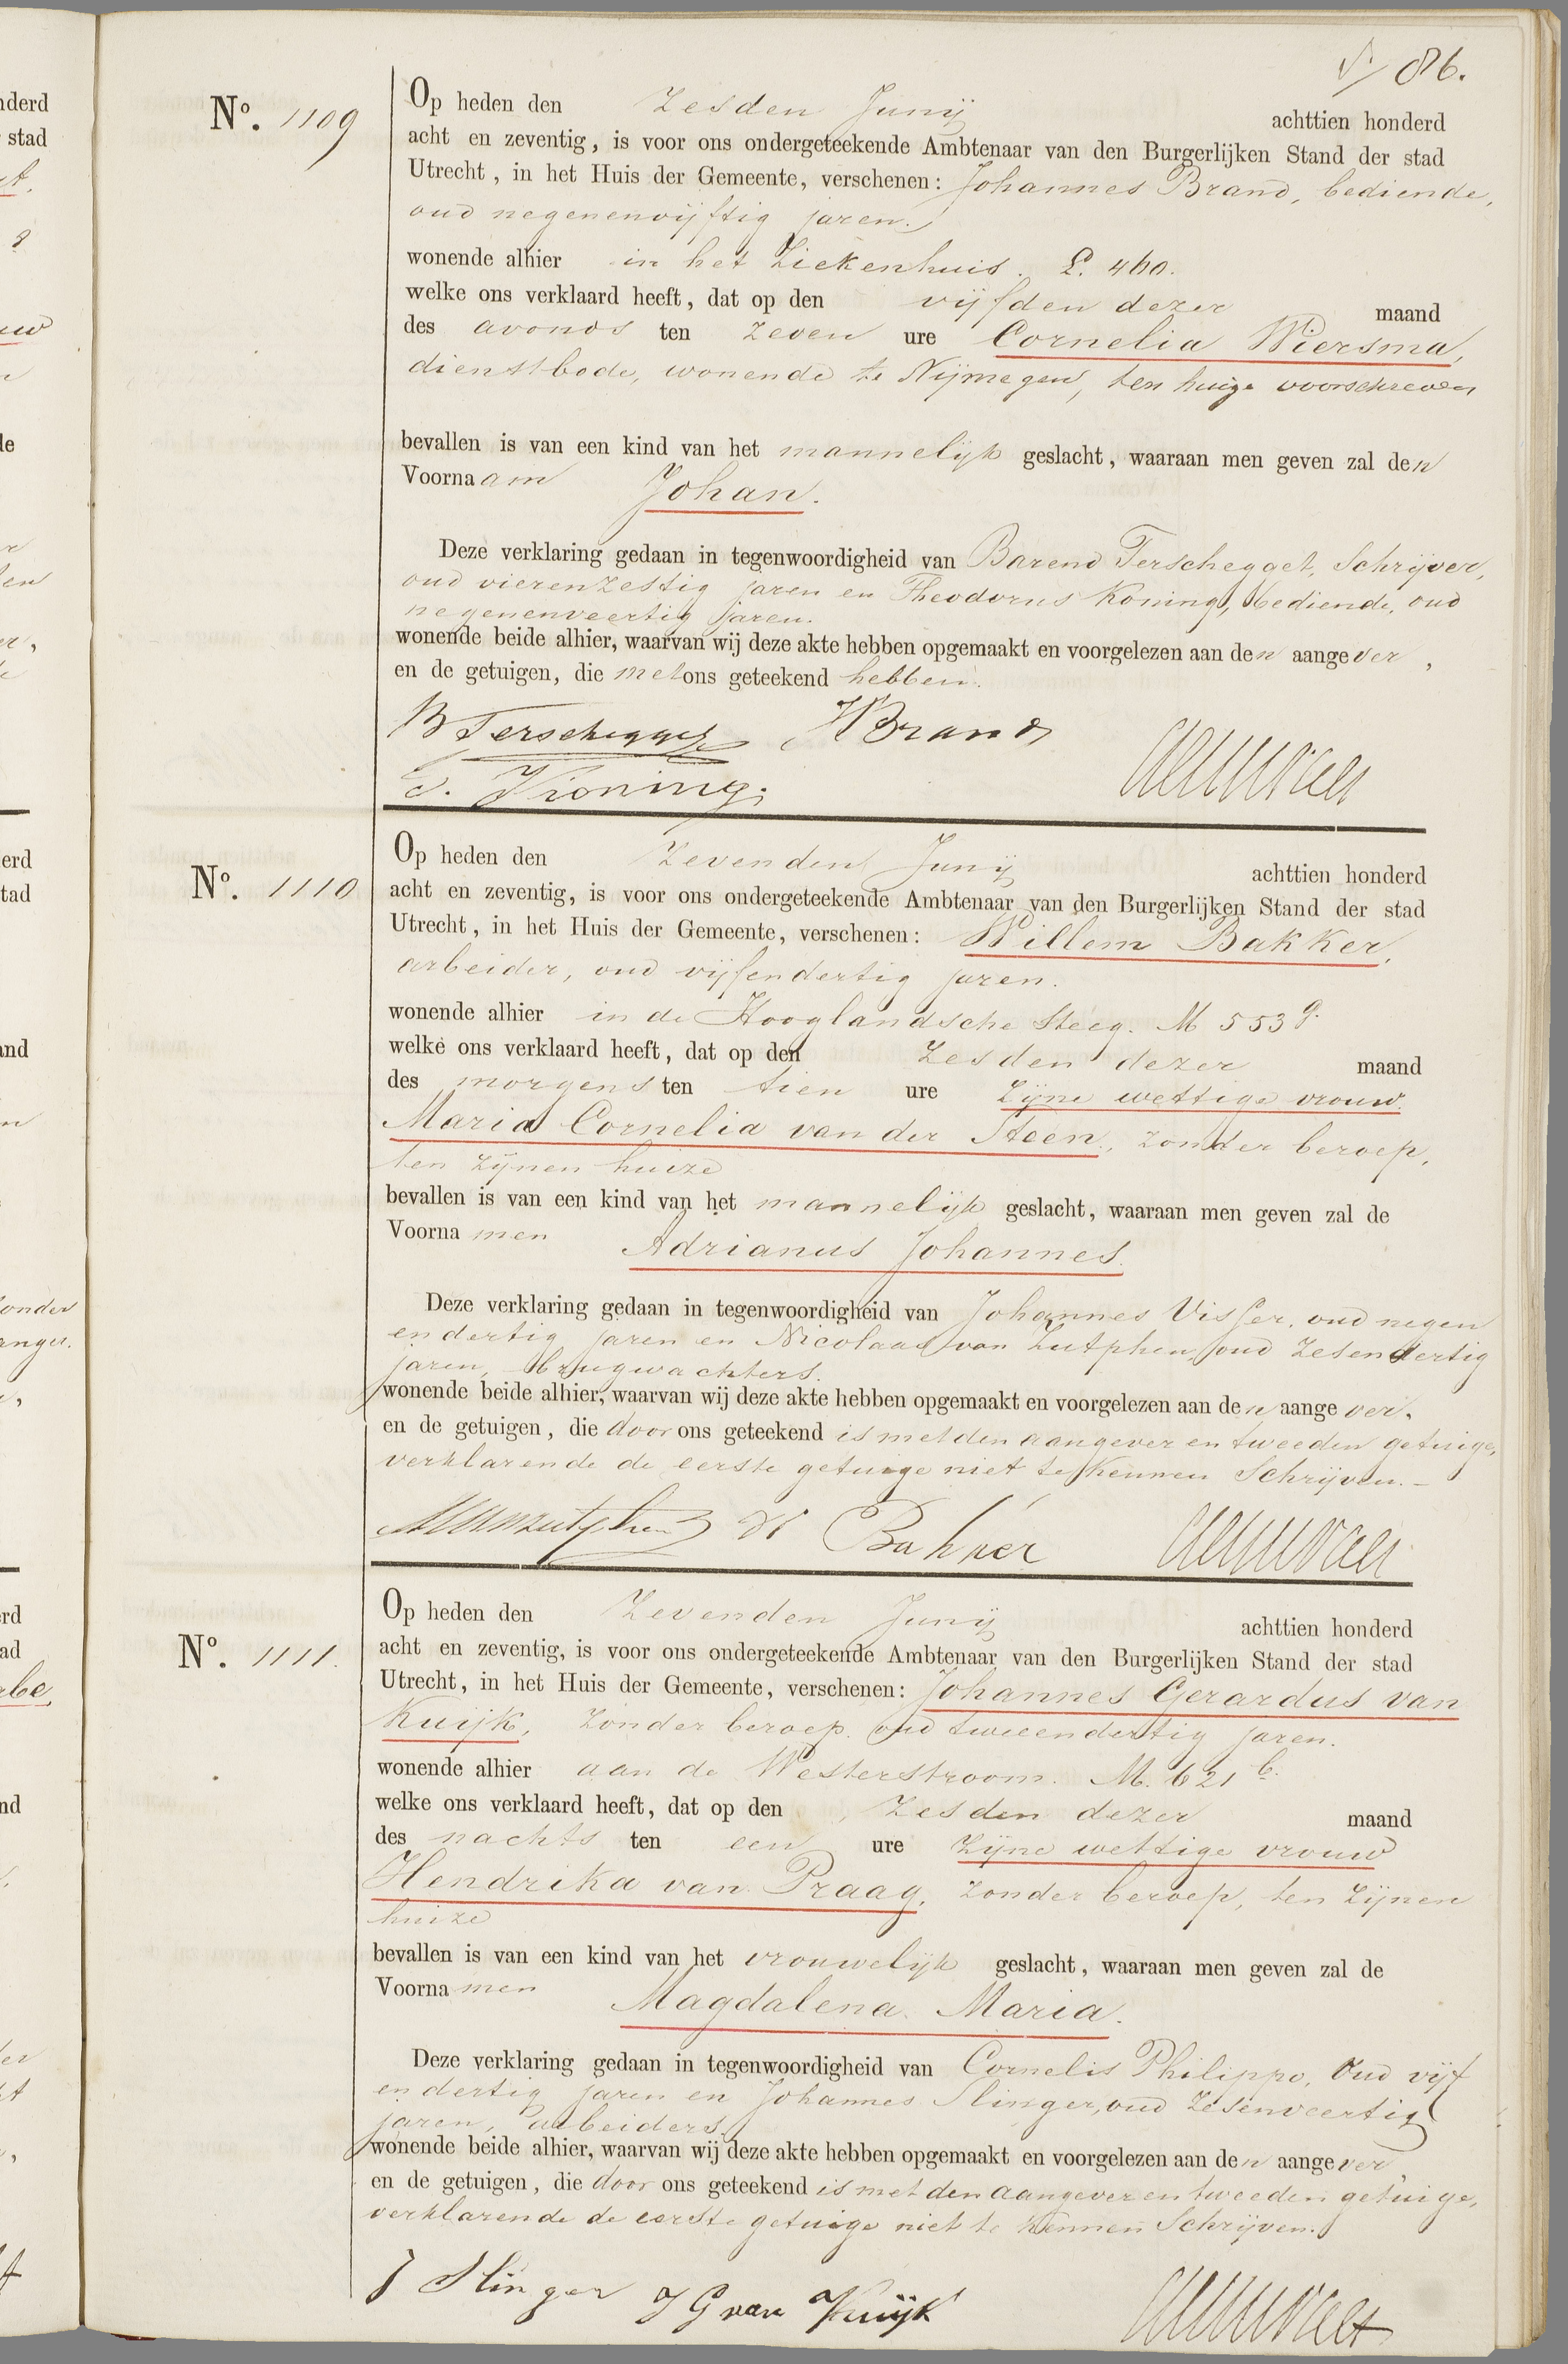 86.
No. 1109
Op heden den Zesden Junij achttien honderd
acht en zeventig, is voor ons ondergeteekende Ambtenaar van den Burgerlijken Stand der stad
Utrecht, in het Huis der Gemeente, verschenen: Johannes Brand, bediende,
oud negenenvijftig jaren.
wonende alhier in het Ziekenhuis. L. 460.
welke ons verklaard heeft, dat op den vijfden dezer maand
des avonds ten zeven ure Cornelia Wiersma,
dienstbode, wonende te Nijmegen, ten huize voorschreven
bevallen is van een kind van het mannelijk geslacht, waaraan men geven zal den
Voornaam Johan.
Deze verklaring gedaan in tegenwoordigheid van Barend Terschegget, Schrijver,
oud vierenzestig jaren en Theodorus Koning, bediende, oud
negenenveertig jaren.
wonende beide alhier, waarvan wij deze akte hebben opgemaakt en voorgelezen aan den aangever,
en de getuigen, die met ons geteekend hebben.
B Terschegget HBrand
T. Koning.
No. 1110
Op heden den Zevenden Junij achttien honderd
acht en zeventig, is voor ons ondergeteekende Ambtenaar van den Burgerlijken Stand der stad
Utrecht, in het Huis der Gemeente, verschenen: Willem Bakker,
arbeider, oud vijfendertig jaren.
wonende alhier in de Hooglandsche Steeg. M 553 g.
welke ons verklaard heeft, dat op den Zesden dezer maand
des morgens ten tien ure Zijne wettige vrouw
Maria Cornelia van der Steen, zonder beroep,
ten zijnen huize
bevallen is van een kind van het mannelijk geslacht, waaraan men geven zal de
Voornamen Adrianus Johannes.
Deze verklaring gedaan in tegenwoordigheid van Johannes Visser, oud negen
en dertig jaren en Nicolaas van Zutphen, oud Zesendertig
jaren, brugwachters.
wonende beide alhier, waarvan wij deze akte hebben opgemaakt en voorgelezen aan den aangever,
en de getuigen, die door ons geteekend is met den aangever en tweeden getuige,
verklarende de eerste getuige niet te kennen Schrijven.
NVanzutphen W Bakker
No. 1111.
Op heden den Zevenden Junij achttien honderd
acht en zeventig, is voor ons ondergeteekende Ambtenaar van den Burgerlijken Stand der stad
Utrecht, in het Huis der Gemeente, verschenen: Johannes Gerardus van
Kuijk, zonder beroep. oud tweeendertig jaren.
wonende alhier aan de Westerstroom. M. 621 b.
welke ons verklaard heeft, dat op den Zesden dezer maand
des nachts ten een ure Zijne wettige vrouw
Hendrika van Praag, zonder beroep, ten Zijnen
huize
bevallen is van een kind van het vrouwelijk geslacht, waaraan men geven zal de
Voornamen Magdalena Maria.
Deze verklaring gedaan in tegenwoordigheid van Cornelis Philippo, oud vijf
en dertig jaren en Johannes Slinger, oud Zesenveertig
jaren, arbeiders.
wonende beide alhier, waarvan wij deze akte hebben opgemaakt en voorgelezen aan den aangever,
en de getuigen, die door ons geteekend is met den aangever en tweeden getuige,
verklarende de eerste getuige niet te kennen Schrijven.
J Slinger J G van Kuijk